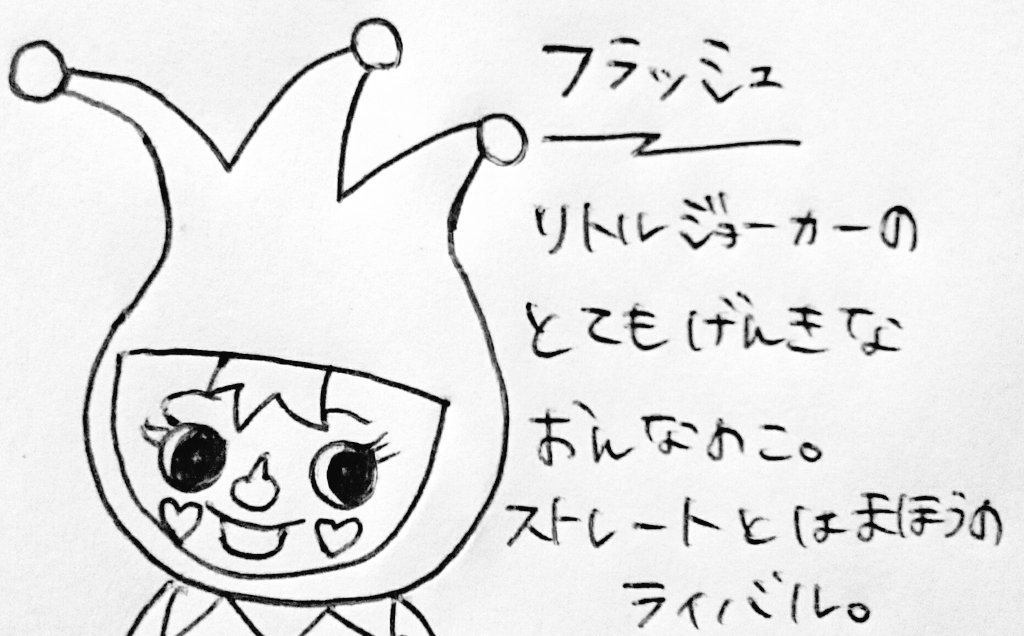 フラッシュ
リトルジョーカーの
とてもげんきな
おんなのこ。
ストレートとはまほうの
ライバル。